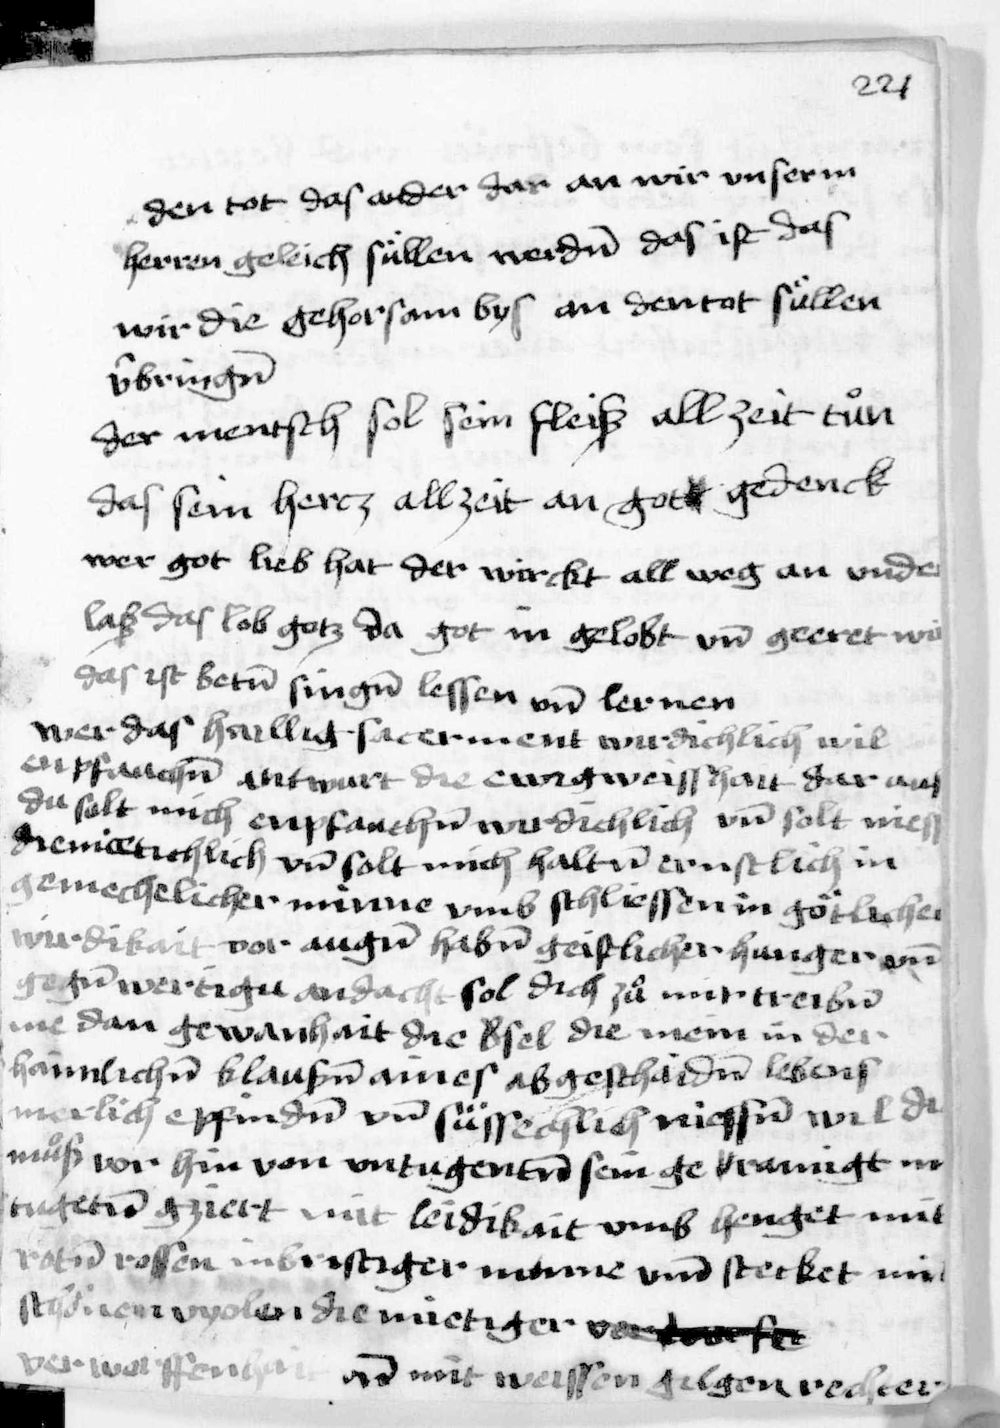 221
den tot das ander dar an wir vnserm
herren geleich süllen werdn̄ das ist das
wir die gehorsam bys an den tot süllen
v̂bringn̄
der mentsch sol sein fleiß all zeit tůn
das sein hercz all zeit an got gedenck
wer got lieb hat der wirckt all weg an vnder
laß das lob gotz da got in gelobt vn̄ geeret wir
das ist betn̄ singn̄ lessen vn̄ lernen
wer das haillig sacerment wirdichlich wil
enpfanchn̄ antwurt die ewig weisshait dar auf
du solt mich enpfanchn̄ wirdichlich vn̄ solt niess
diemietichlich vn̄ solt mich haltn̄ ernstlich in
gemechelicher minne vmb schliessen in götlicher
wirdikait vor augn̄ habn̄ geistlicher hunger vn̄
gegn̄wertigu andacht sol dich zů mir treibn̄
me dan gewanhait die sel die mein in der
haimlichn̄ klausn̄ aines abgeschaidn̄ lebens
inerlich epfindn̄ vn̄ süssechlich niessn̄ wil di
můß vor hin von vntugentn̄ sein ge rainigt m
tugetn̄ gziert mit leidikait vmb henget mit
rotn̄ rossen inbristiger minne vnd stecket mit
schönen vyolen die mietiger
verworffenhait vn̄ mit weissen gilgen rechter